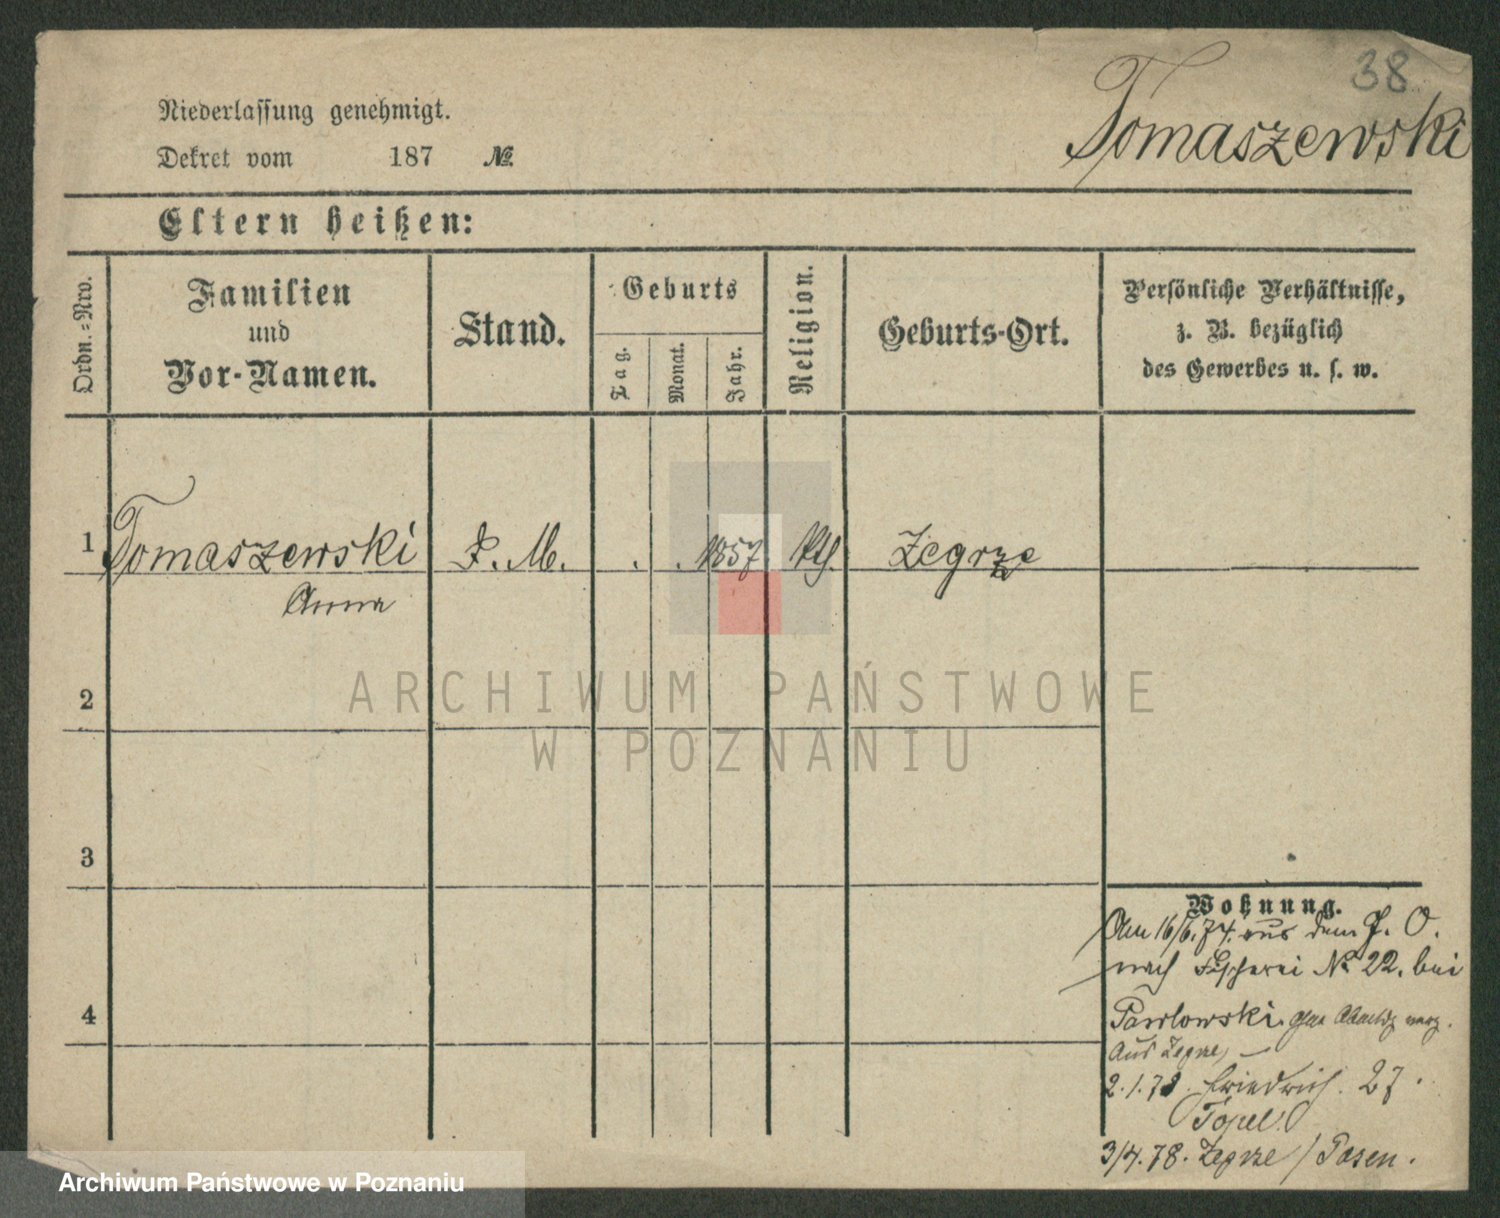 38
Tomaszewski
Niederlassung genehmigt.
Dekret vom 187 №
Eltern heißen:
Ordn.-Nro.
Familien
und
Vor-Namen.
Stand.
Geburts
Tag.
Monat.
Jahr.
Religion.
Geburts-Ort.
Persönliche Verhältnisse,
z. B. bezüglich
des Gewerbes u. s. w.
1 Tomaszewski D. M. . . 1857 kth. Zegrze
Anna
2
3
4
Wohnung.
Am 16/6.74. aus dem P. O.
nach Fischerei № 22. bei
Pawlowski.
Aus Zegrze,
2.1.78. Friedrich. 27.
Topel
3/4.78. Zegrze / Posen.
ARCHIWUM PAŃSTWOWE
W POZNANIU
Archiwum Państwowe w Poznaniu